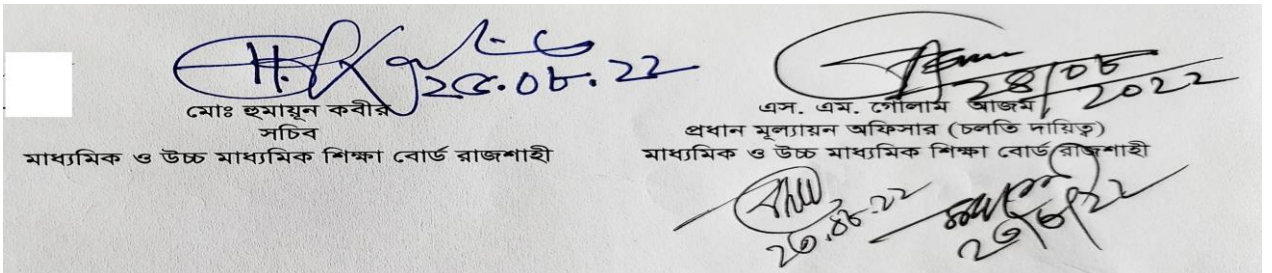 ২৫.০৮.২২
২৪/০৮/২০২২
মোঃ হুমায়ূন কবীর
সচিব
মাধ্যমিক ও উচ্চ মাধ্যমিক শিক্ষা বোর্ড রাজশাহী
এস. এম. গোলাম আজম
প্রধান মূল্যায়ন অফিসার (চলতি দায়িত্ব)
মাধ্যমিক ও উচ্চ মাধ্যমিক শিক্ষা বোর্ড রাজশাহী
২৩.০৮.২২